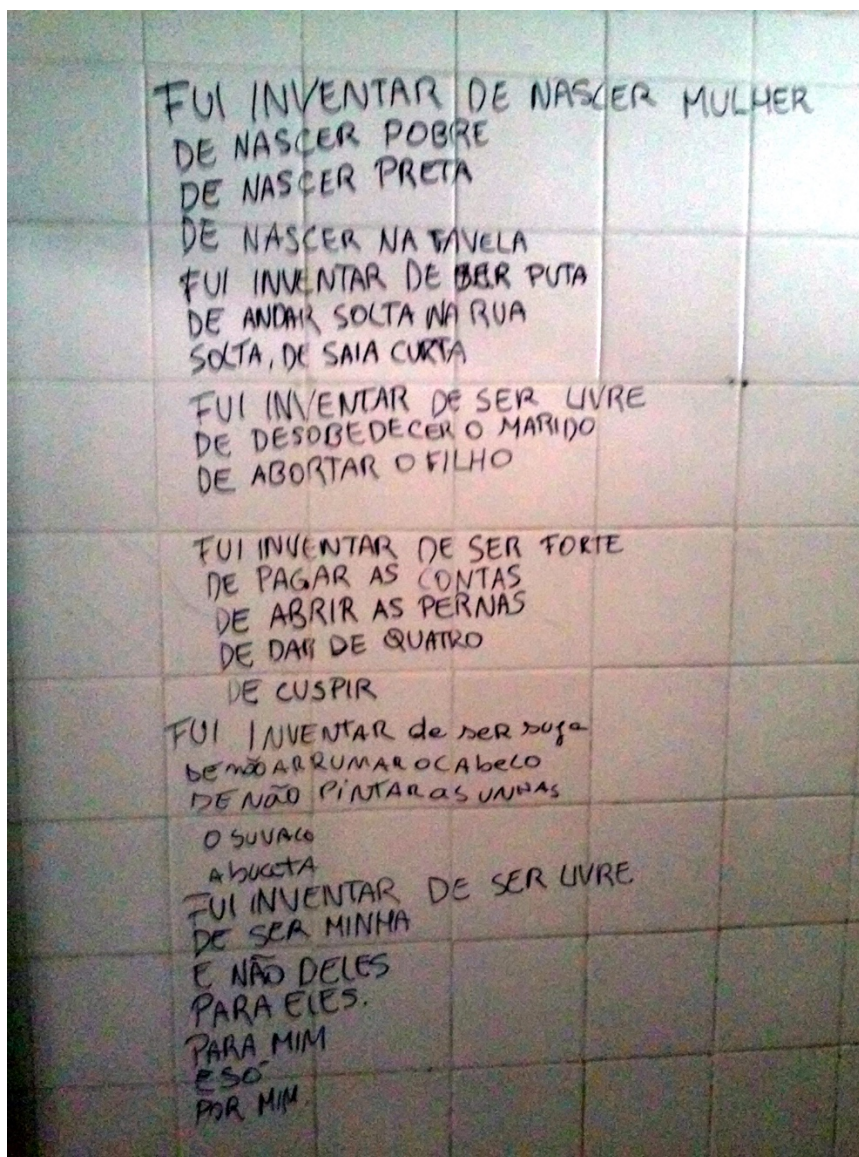 FUI INVENTAR DE NASCER MULHER
DE NASCER POBRE
DE NASCER PRETA
DE NASCER NA FAVELA
FUI INVENTAR DE SER PUTA
DE ANDAR SOLTA NA RUA
SOLTA, DE SAIA CURTA
FUI INVENTAR DE SER LIVRE
DE DESOBEDECER O MARIDO
DE ABORTAR O FILHO
FUI INVENTAR DE SER FORTE
DE PAGAR AS CONTAS
DE ABRIR AS PERNAS
DE DAR DE QUATRO
DE CUSPIR
FUI INVENTAR de seR suja
DE não ARRUMAR O CAbeLO
DE NÃO PiNTAR as UNHAS
O SUVACO
A buceTA
FUI INVENTAR DE SER LIVRE
DE SER MINHA
E NÃO DELES
PARA ELES.
PARA MIM
E SÓ
POR MIM.